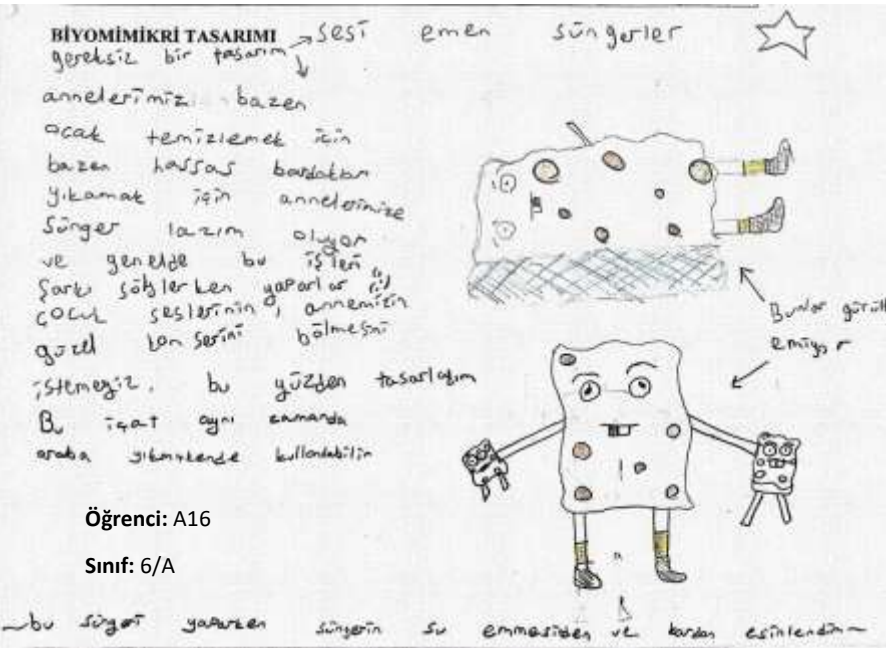 BİYOMİMİKRİ TASARIMI → sesi emen süngerler
gereksiz bir tasarım
annelerimiz bazen
ocak temizlemek için
bazen hassas bardakları
yıkamak için annelerimize
sünger lazım oluyor
ve genelde bu işleri
şarkı söylerken yaparlar
çocuk seslerinin, annemizin
güzel konserini bölmesini
istemeyiz. bu yüzden tasarladım
Bu icat aynı zamanda
araba yıkmakende kullanılabilir
Bunlar gürül
emiyor
Öğrenci: A16
Sınıf: 6/A
~bu süngeri yaparken süngerin su emmesinden ve kardan esinlendim~